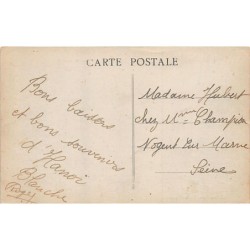 CARTE POSTALE
Bons baisers
et bons souvenirs
d'Hanoi
Blanche
Madame Hubert
chez Mme Champion
Nogent sur Marne
Seine